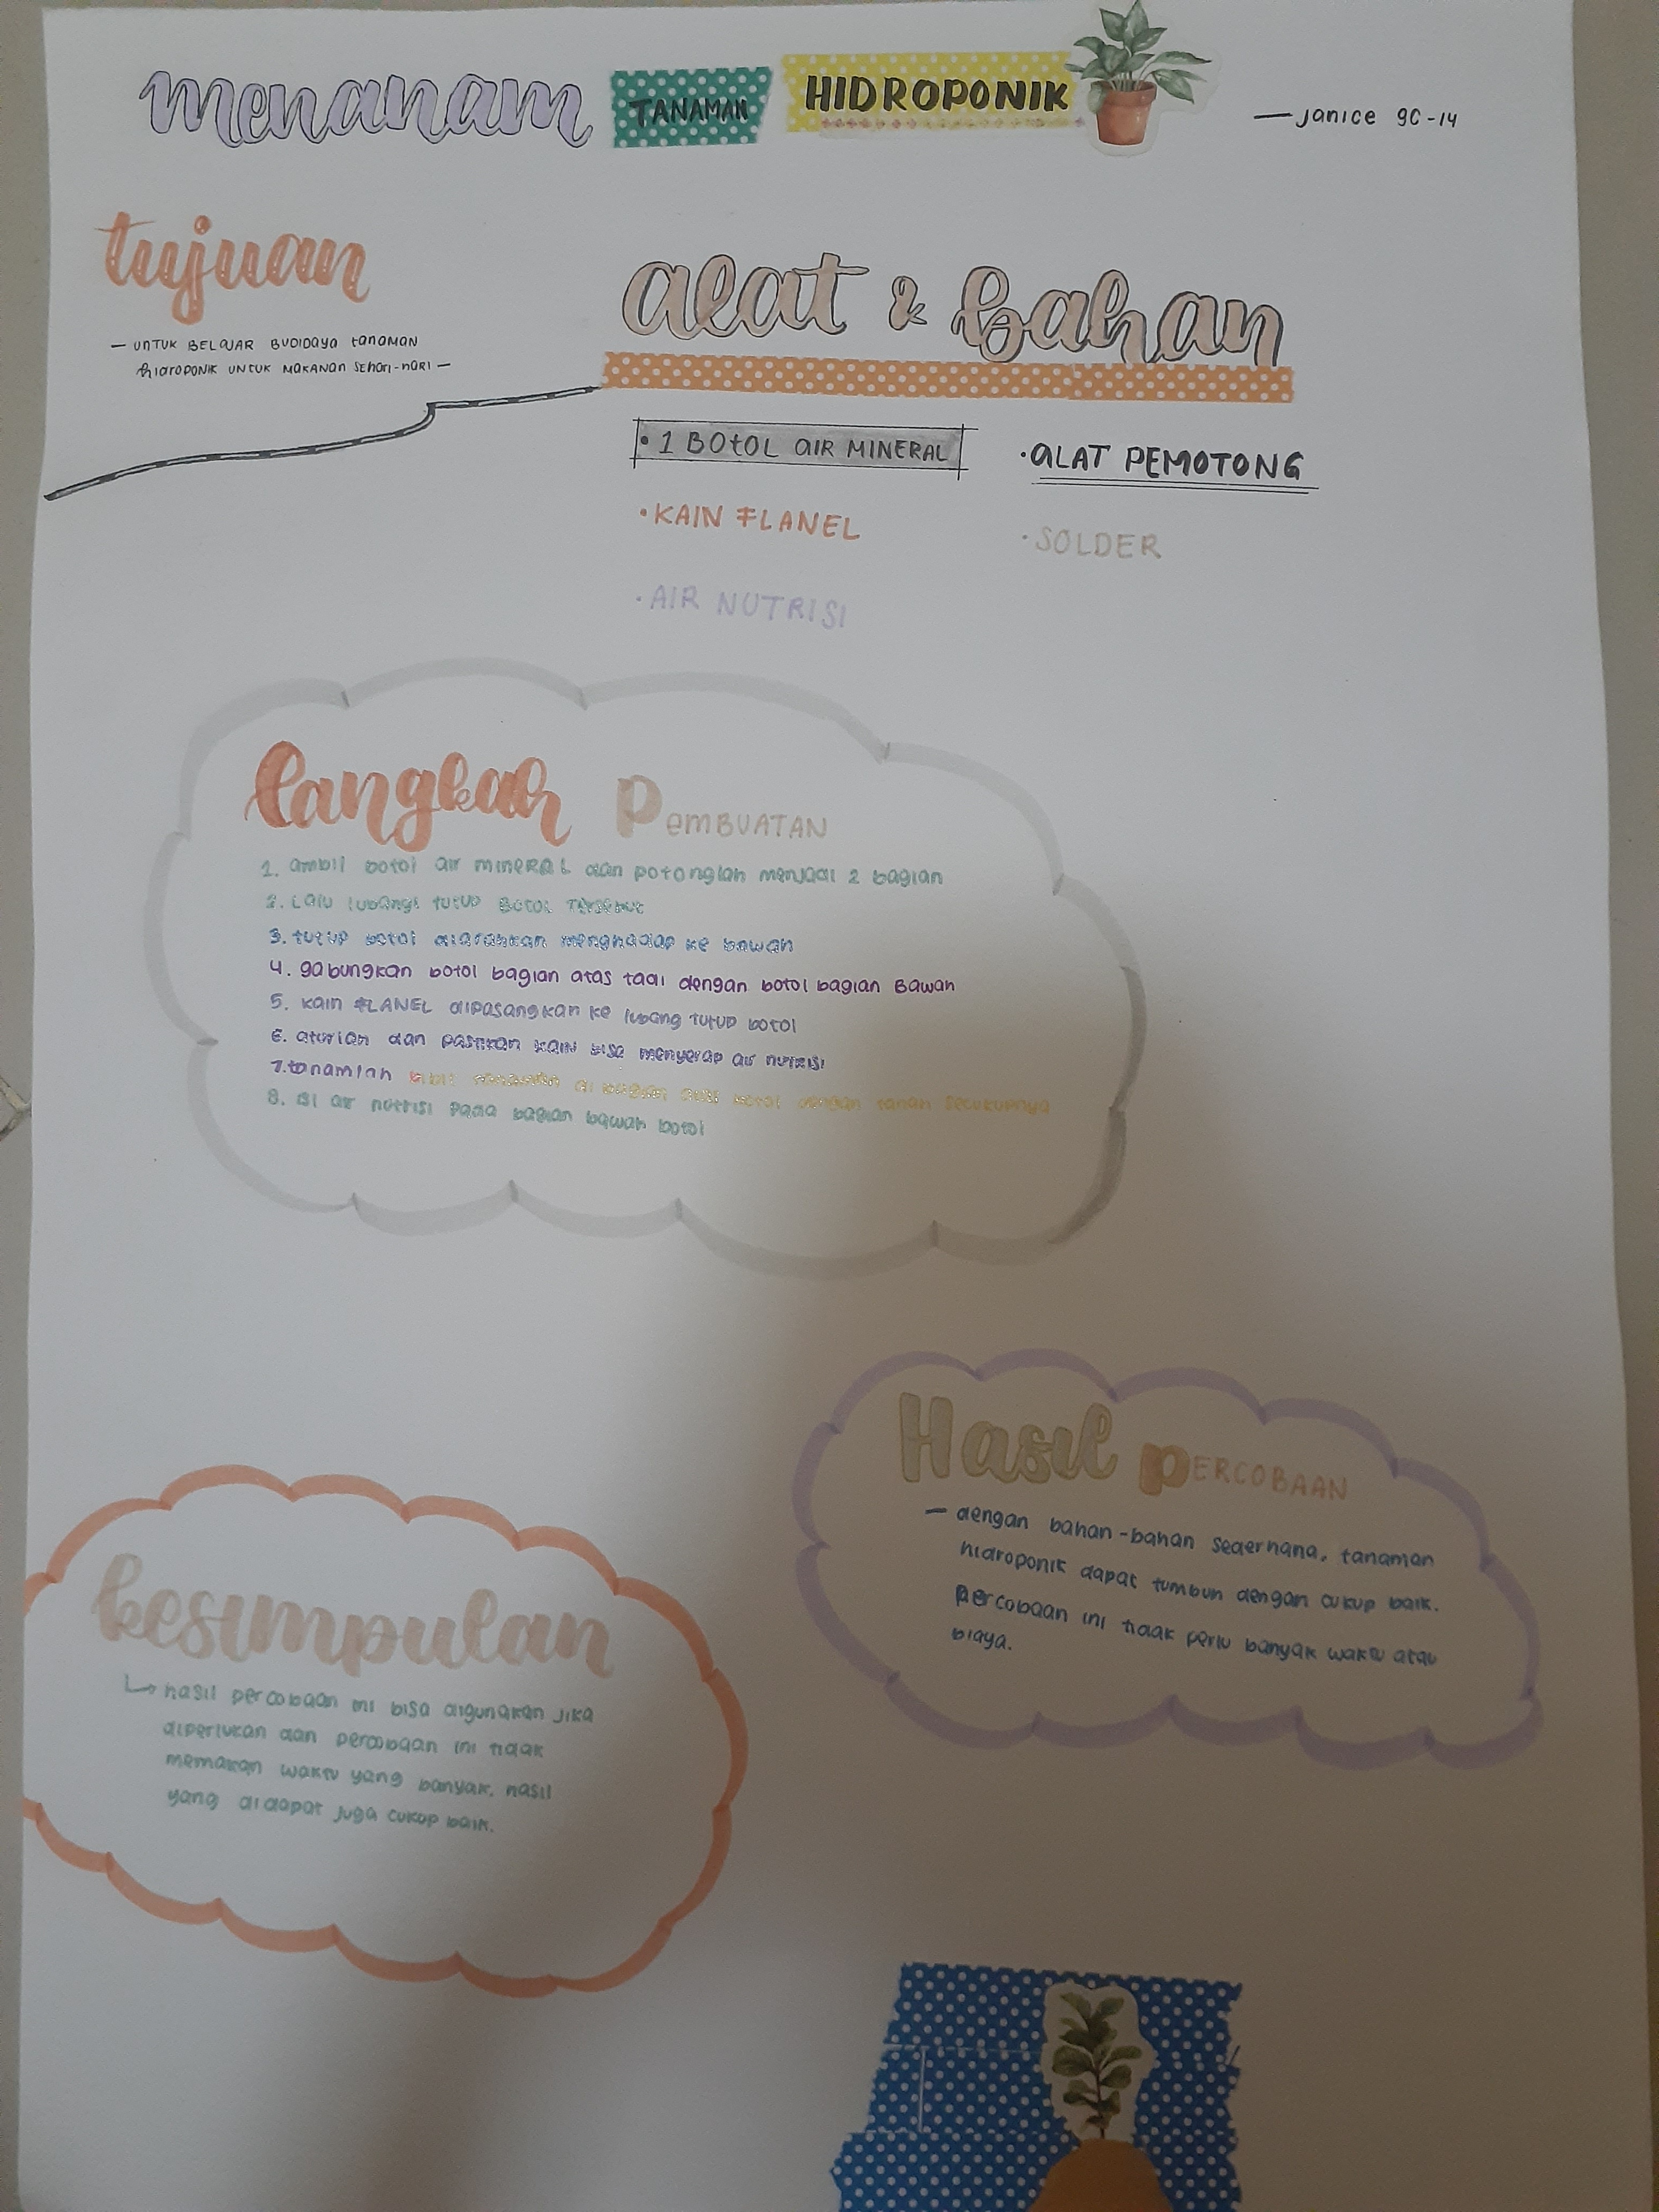 menanam TANAMAN HIDROPONIK
— Janice 9C-14
tujuan
— UNTUK BELAJAR BUDIDAYA tanaman
hidroponik untuk makanan sehari-hari —
alat & bahan
• 1 BOTOL AIR MINERAL
• KAIN FLANEL
• AIR NUTRISI
• ALAT PEMOTONG
• SOLDER
langkah Pembuatan
1. ambil botol air mineral dan potonglah menjadi 2 bagian
2. Lalu lubangi tutup botol tersebut
3. tutup botol diarahkan menghadap ke bawah
4. gabungkan botol bagian atas tadi dengan botol bagian bawah
5. kain FLANEL dipasangkan ke lubang tutup botol
6. aturlah dan pastikan kain bisa menyerap air nutrisi
7. tanamlah bibit di bagian atas botol dengan tanah secukupnya
8. isi air nutrisi pada bagian bawah botol
Hasil PERCOBAAN
— dengan bahan-bahan sederhana, tanaman
hidroponik dapat tumbuh dengan cukup baik.
percobaan ini tidak perlu banyak waktu atau
biaya.
kesimpulan
↳ hasil percobaan ini bisa digunakan jika
diperlukan dan percobaan ini tidak
memakan waktu yang banyak. hasil
yang didapat juga cukup baik.